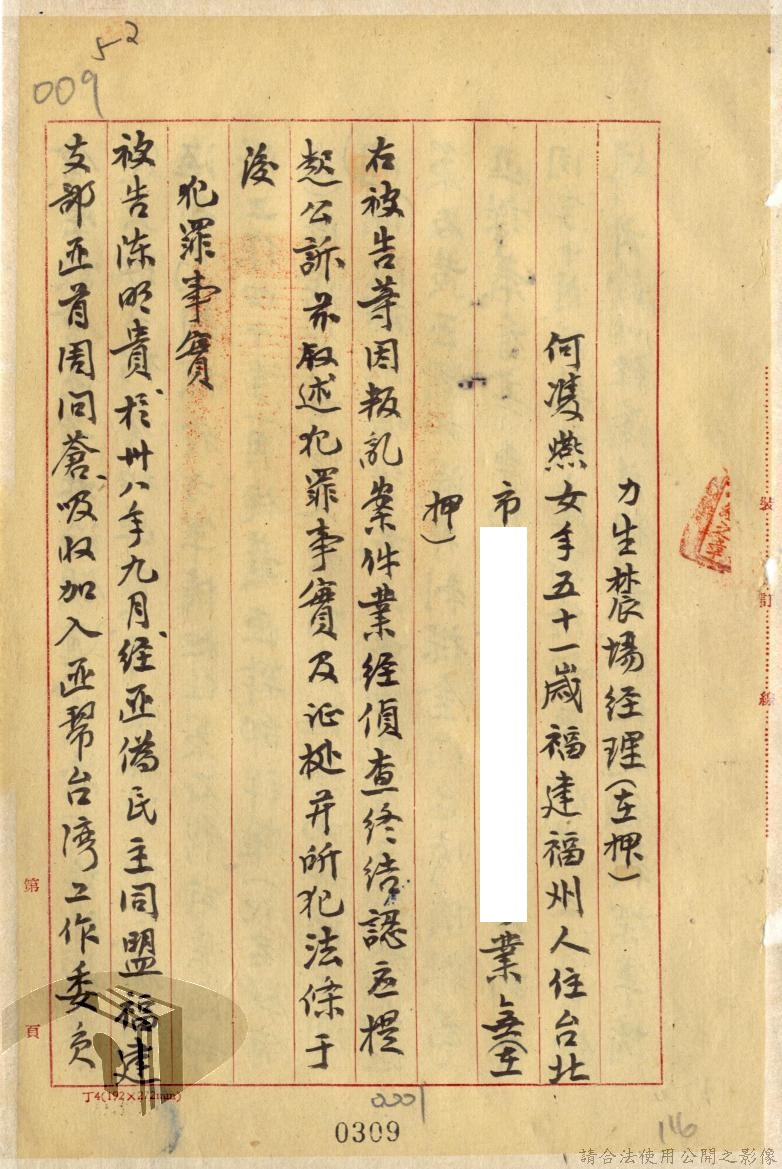 009
52
力生農場經理(在押)
何凌燕女年五十一歲福建福州人住台北
市
業無(在
押)
右被告等因叛乱案件業經偵查終結認应提
起公訴茲叙述犯罪事實及证据并所犯法條于
後
犯罪事實
被告陈明貴於卅八年九月經匪偽民主同盟福建
支部匪首周问蒼吸收加入匪幫台湾工作委員
裝
訂
線
第
頁
0309
116
請合法使用公開之影像